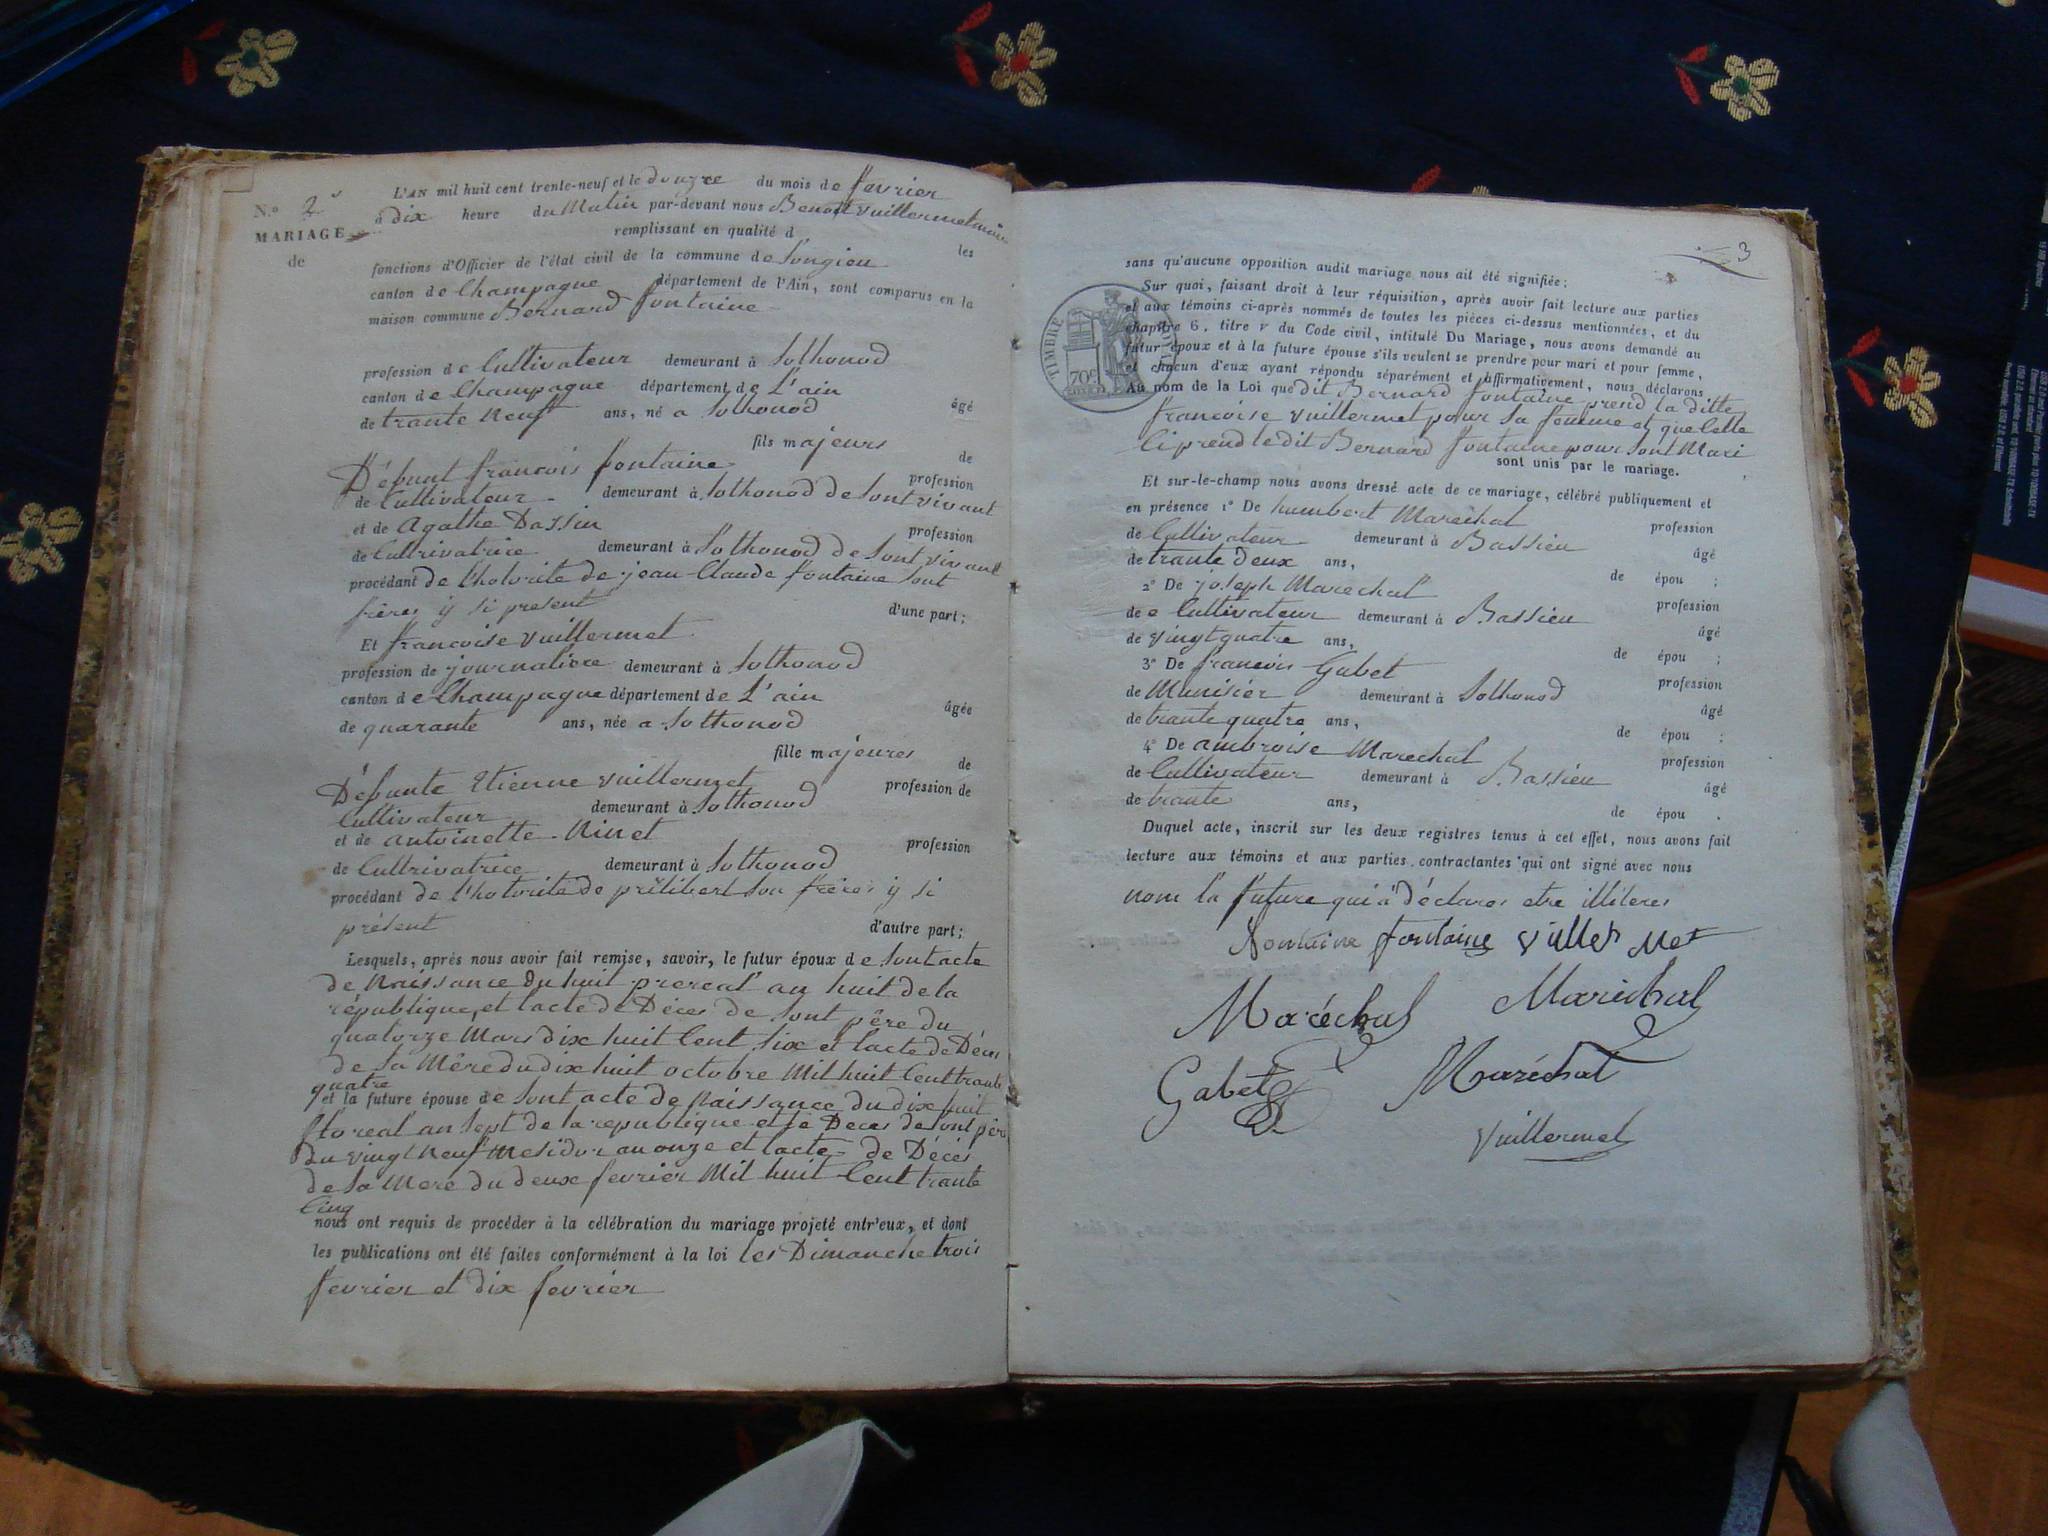 N.o 2
MARIAGE
de
L'AN mil huit cent trente-neuf et le douzze du mois de fevrier
à dix heure du Matin par-devant nous Benoit vuillermet maire
remplissant en qualité d les
fonctions d'Officier de l'état civil de la commune de Songieu
canton de Champagne département de l'Ain, sont comparus en la
maison commune Bernard fontaine
profession de Cultivateur demeurant à Sothonod
canton de Champagne département de L'ain
de trante Neuf ans, né a Sothonod âgé
fils majeurs de
Défunt francois fontaine profession
de Cultivateur demeurant à Sothonod de Sont vivant
et de Agathe Dassin profession
de Cultrivatrice demeurant à Sothonod de Sont vivant
procédant de l'hotorite de jean Claude fontaine Sont
frères y si present d'une part;
Et francoise vuillermet
profession de journaliere demeurant à Sothonod
canton de Champagne département de L'ain
de quarante ans, née a Sothonod âgée
fille majeures de
Défunte Etienne vuillermet profession de
Cultivateur demeurant à Sothonod
et de antoinette Ninet profession
de Cultrivatrice demeurant à Sothonod
procédant de l'hotorité de prilibert Son frères y si
présent d'autre part;
Lesquels, après nous avoir fait remise, savoir, le futur époux de Sont acte
de Naissance du huit prereal an huit de la
république, et lacte de Déces de Sont père du
quatorze Mars dix huit Cent Six et lacte de Déces
de Sa Mère du dix huit octobre Mil huit Cent trante
quatre
et la future épouse de Sont acte de Naissance du dix huit
floreal an Sept de la republique et le Déces de Sont père
du vingt Neuf Mesidor an onze et lacte de Déces
de Sa Mere du deux fevrier Mil huit Cent trante
Cinq
nous ont requis de procéder à la célébration du mariage projeté entr'eux, et dont
les publications ont été faites conformément à la loi les Dimanche trois
fevrier et dix fevrier
3
sans qu'aucune opposition audit mariage nous ait été signifiée;
Sur quoi, faisant droit à leur réquisition, après avoir fait lecture aux parties
et aux témoins ci-après nommés de toutes les pièces ci-dessus mentionnées, et du
chapitre 6, titre v du Code civil, intitulé Du Mariage, nous avons demandé au
futur époux et à la future épouse s'ils veulent se prendre pour mari et pour femme,
et chacun d'eux ayant répondu séparément et affirmativement, nous déclarons
TIMBRE ROYAL
70c
Au nom de la Loi que dit Bernard fontaine prend la ditte
francoise vuillermet pour Sa femme et que Celle
Ci prend le dit Bernard fontaine pour Sont Mari
sont unis par le mariage.
Et sur-le-champ nous avons dressé acte de ce mariage, célébré publiquement et
en présence 1° De humbert Marechal profession
de Cultivateur demeurant à Bassieu
de trante deux ans, âgé
de épou ;
2° De joseph Marechal profession
de e Cultivateur demeurant à Bassieu
de vingt quatre ans, âgé
de épou ;
3° De francois Gabet profession
de Munisier demeurant à Sothonod
de trante quatre ans, âgé
de épou :
4° De ambroise Marechal profession
de Cultivateur demeurant à Bassieu
de trante ans, âgé
de épou .
Duquel acte, inscrit sur les deux registres tenus à cet effet, nous avons fait
lecture aux témoins et aux parties contractantes qui ont signé avec nous
nom la future qui a déclares etre illiteres
fontaine fontaine Villermet
Maréchal Maréchal
Gabet Maréchal
Vuillermet